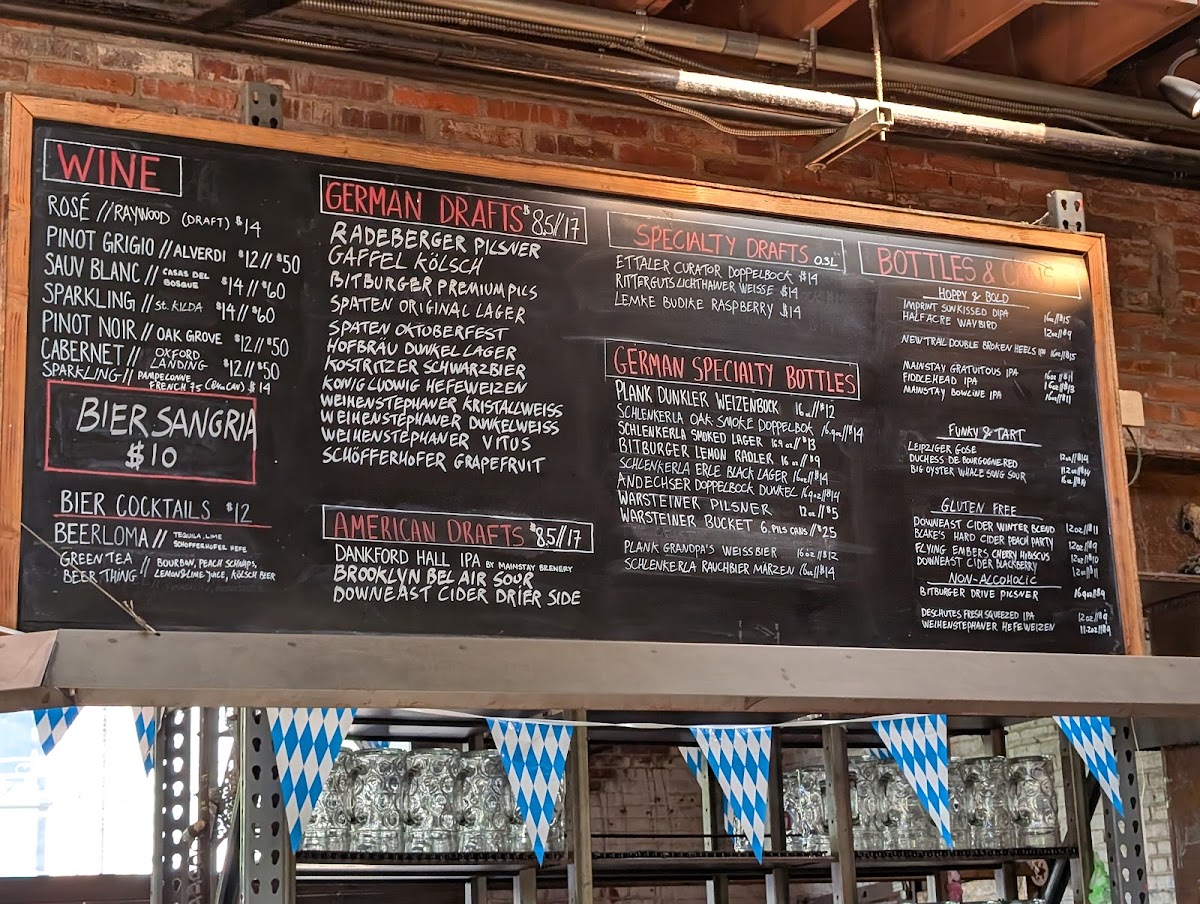 WINE
ROSÉ // RAYWOOD (DRAFT) $14
PINOT GRIGIO // ALVERDI $12 // $50
SAUV BLANC // CASAS DEL BOSQUE $14 // $60
SPARKLING // ST. KILDA $14 // $60
PINOT NOIR // OAK GROVE $12 // $50
CABERNET // OXFORD LANDING $12 // $50
SPARKLING // PAMPELONNE
FRENCH 75 CAN) $14
BIER SANGRIA
$10
BIER COCKTAILS $12
BEERLOMA // TEQUILA, LIME
SCHOFFERHOFER HEFE
GREEN TEA // BOURBON, PEACH SCHNAPS,
BEER THING // LEMON & LIME JUICE, KÖLSCH BEER
GERMAN DRAFTS $8.5//17
RADEBERGER PILSNER
GAFFEL KÖLSCH
BITBURGER PREMIUM PILS
SPATEN ORIGINAL LAGER
SPATEN OKTOBERFEST
HOFBRÄU DUNKEL LAGER
KOSTRITZER SCHWARZBIER
KONIG LUDWIG HEFEWEIZEN
WEIHENSTEPHANER KRISTALLWEISS
WEIHENSTEPHANER DUNKELWEISS
WEIHENSTEPHANER VITUS
SCHÖFFERHOFER GRAPEFRUIT
AMERICAN DRAFTS $8.5//17
DANKFORD HALL IPA BY MAINSTAY BREWERY
BROOKLYN BEL AIR SOUR
DOWNEAST CIDER DRIER SIDE
SPECIALTY DRAFTS 0.3L
ETTALER CURATOR DOPPELBOCK $14
RITTERGUTS LICHTHAWER WEISSE $14
LEMKE BUDIKE RASPBERRY $14
GERMAN SPECIALTY BOTTLES
PLANK DUNKLER WEIZENBOCK 16oz//$12
SCHLENKERLA OAK SMOKE DOPPELBOK 16.9oz//$14
SCHLENKERLA SMOKED LAGER 16.9oz//$13
BITBURGER LEMON RADLER 16oz//$9
SCHLENKERLA ERLE BLACK LAGER 16oz//$14
ANDECHSER DOPPELBOCK DUNKEL 16.9oz//$14
WARSTEINER PILSNER 12oz//$5
WARSTEINER BUCKET 6 PILS CANS//$25
PLANK GRANDPA'S WEISSBIER 16oz//$12
SCHLENKERLA RAUCHBIER MÄRZEN 16oz//$14
BOTTLES & CANS
HOPPY & BOLD
IMPRINT SUNKISSED DIPA 16oz//$15
HALFACRE WAYBIRD 12oz//$9
NEW TRAIL DOUBLE BROKEN HEELS IPA 16oz//$15
MAINSTAY GRATUITOUS IPA 16oz//$11
FIDDLEHEAD IPA 16oz//$13
MAINSTAY BOWLINE IPA 16oz//$11
FUNKY & TART
LEIPZIGER GOSE 12oz//$14
DUCHESS DE BOURGOGNE RED 11.2oz//$14
BIG OYSTER WHALE SONG SOUR 16oz//$14
GLUTEN FREE
DOWNEAST CIDER WINTER BLEND 12oz//$11
BLAKE'S HARD CIDER PEACH PARTY 12oz//$9
FLYING EMBERS CHERRY HIBISCUS 12oz//$10
DOWNEAST CIDER BLACKBERRY 12oz//$11
NON-ALCOHOLIC
BITBURGER DRIVE PILSNER 16.9oz//$9
DESCHUTES FRESH SQUEEZED IPA 12oz//$9
WEIHENSTEPHANER HEFEWEIZEN 11.2oz//$9